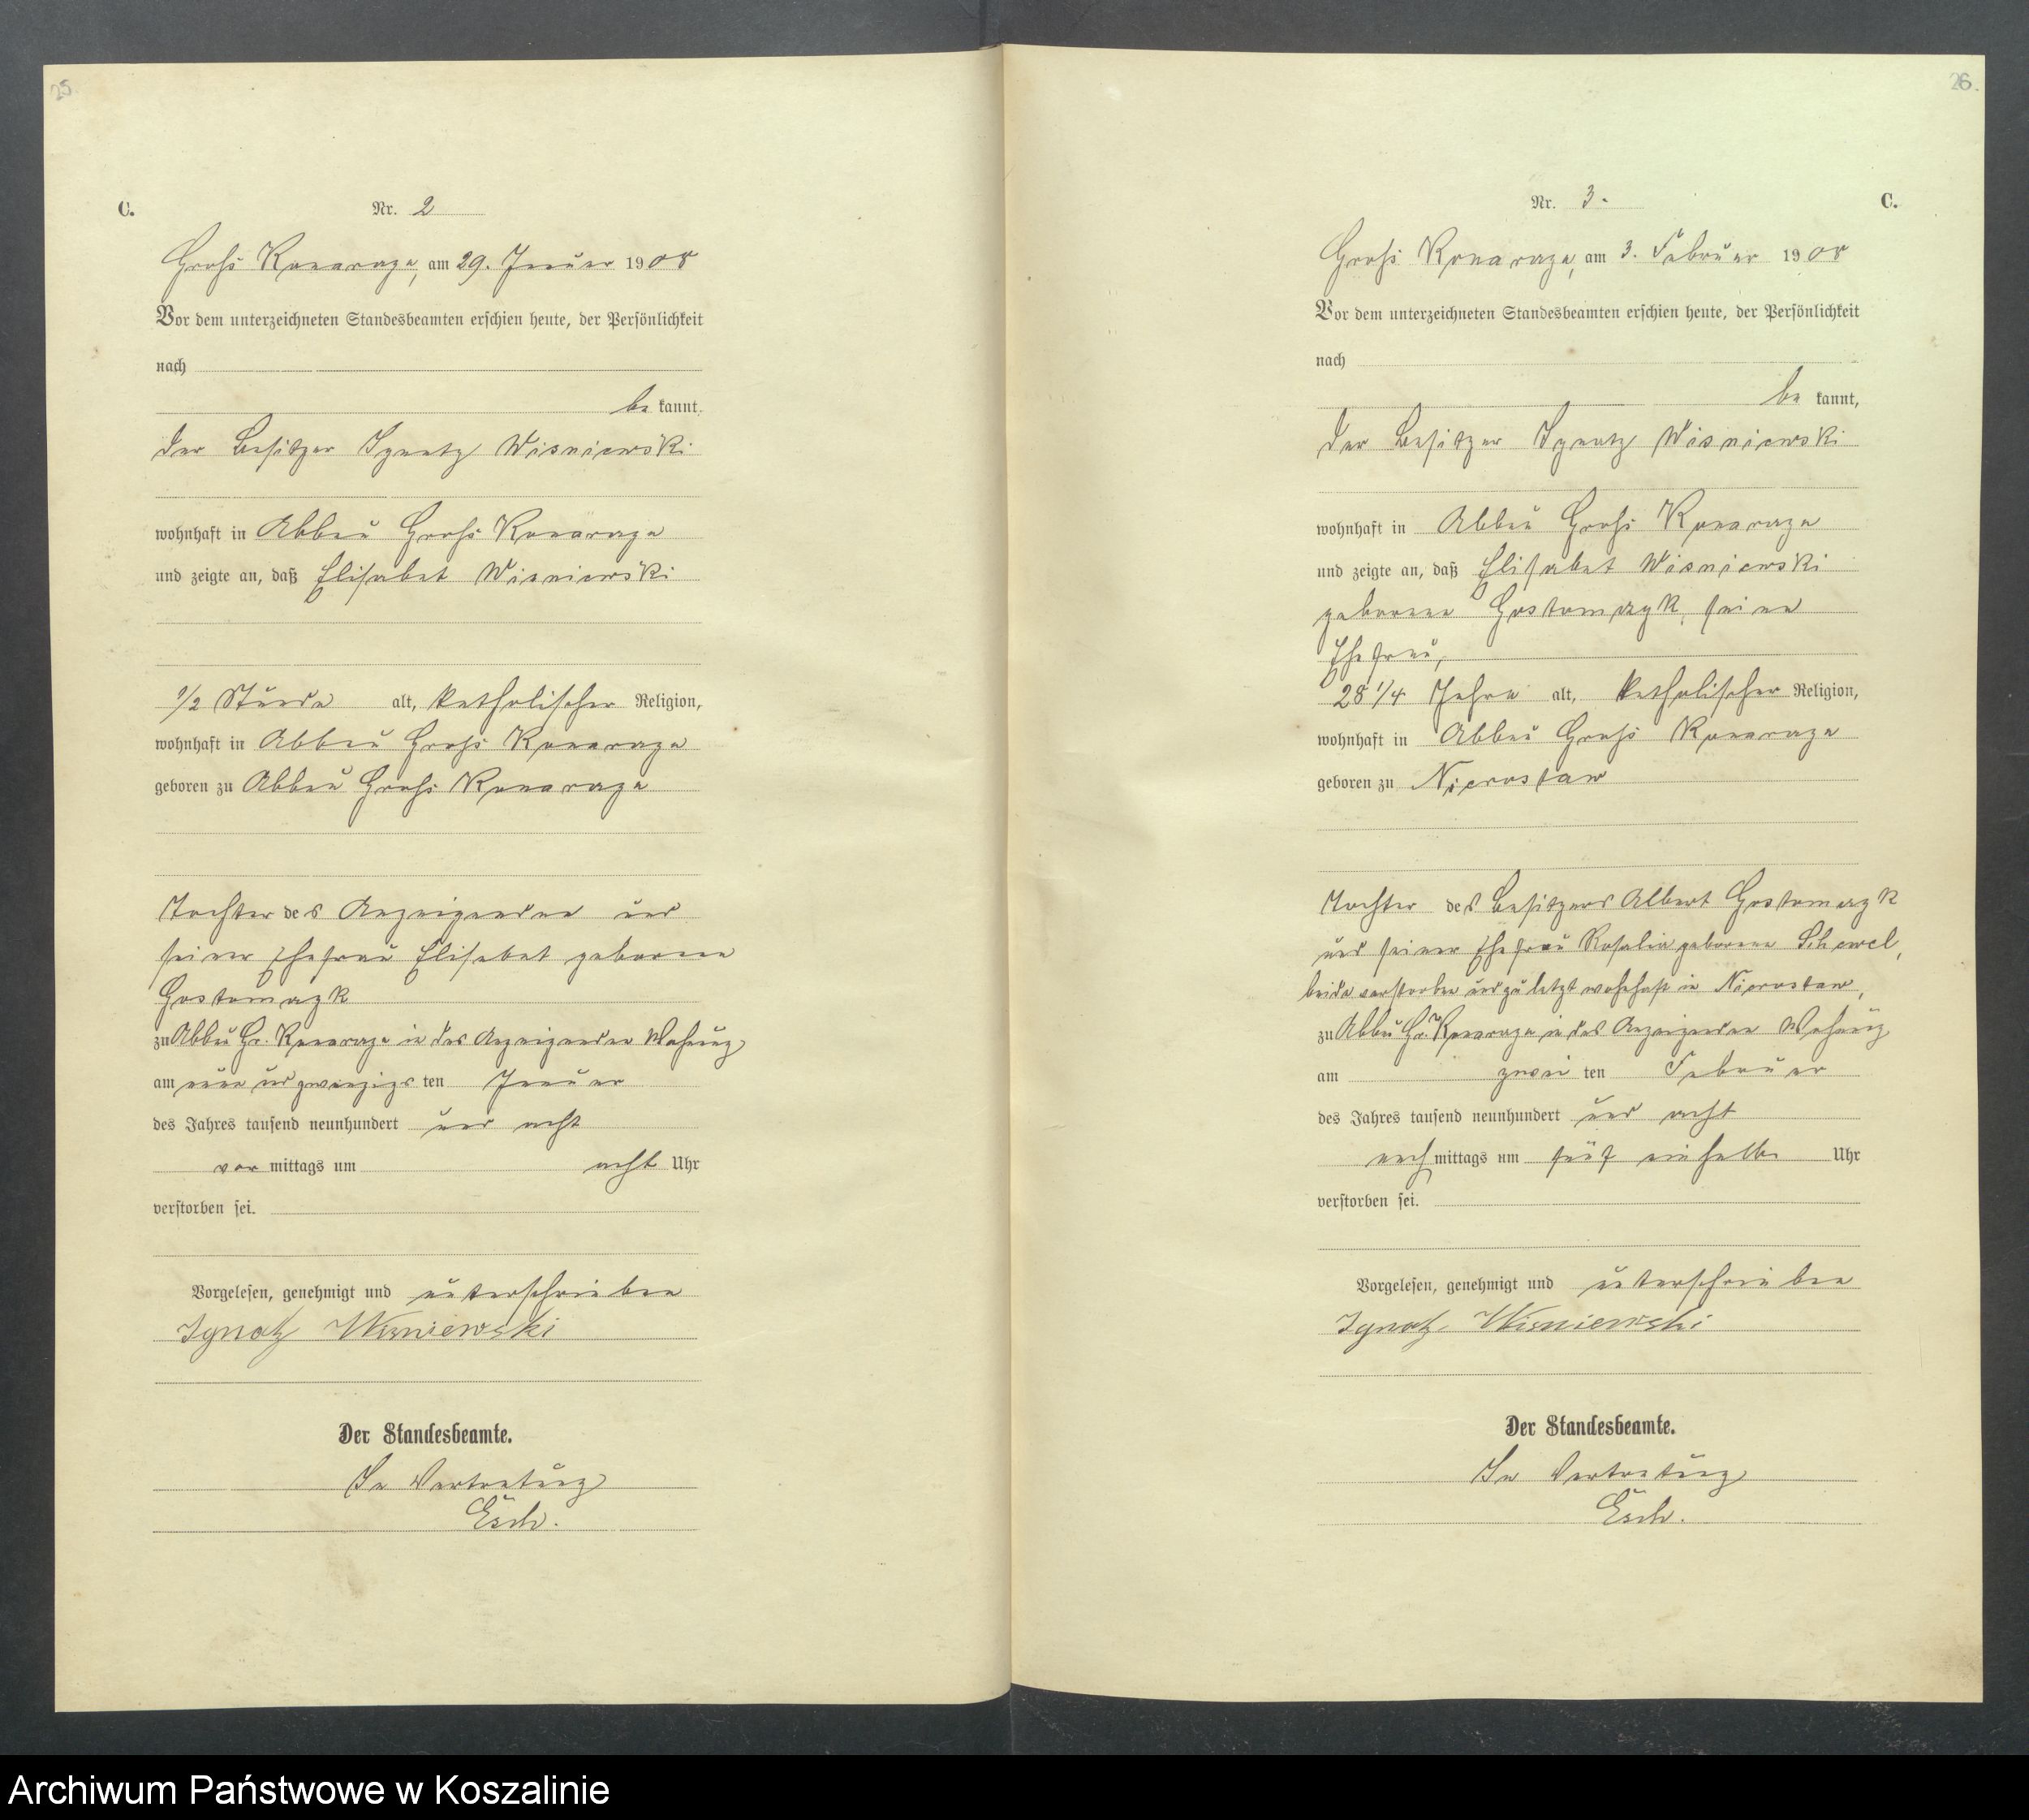 25.
C.
Nr. 2
Groß Konarzyn, am 29. Januar 1908
Vor dem unterzeichneten Standesbeamten erschien heute, der Persönlichkeit
nach
be kannt,
der Besitzer Ignatz Wisniewski
wohnhaft in Abbau Groß Konarzyn
und zeigte an, daß Elisabet Wisniewski
1/2 Stunde alt, katholischer Religion,
wohnhaft in Abbau Groß Konarzyn
geboren zu Abbau Groß Konarzyn
Tochter des Anzeigenden und
seiner Ehefrau Elisabet geborene
Gostomzyk
zu Abbau Gr. Konarzyn in des Anzeigenden Wohnung
am neun und zwanzigs ten Januar
des Jahres tausend neunhundert und acht
vor mittags um acht Uhr
verstorben sei.
Vorgelesen, genehmigt und unterschrieben
Ignatz Wisniewski
Der Standesbeamte.
In Vertretung
Esch.
26.
Nr. 3.
C.
Groß Konarzyn, am 3. Februar 1908
Vor dem unterzeichneten Standesbeamten erschien heute, der Persönlichkeit
nach
be kannt,
der Besitzer Ignatz Wisniewski
wohnhaft in Abbau Groß Konarzyn
und zeigte an, daß Elisabet Wisniewski
geborene Gostomzyk, seine
Ehefrau,
28 1/4 Jahre alt, katholischer Religion,
wohnhaft in Abbau Groß Konarzyn
geboren zu Nierostaw
Tochter des Besitzers Albert Gostomzyk
und seiner Ehefrau Rosalia geborene Schewel,
beide verstorben und zuletzt wohnhaft in Nierostaw,
zu Abbau Gr. Konarzyn in des Anzeigenden Wohnung
am zwei ten Februar
des Jahres tausend neunhundert und acht
nach mittags um fünf einhalb Uhr
verstorben sei.
Vorgelesen, genehmigt und unterschrieben
Ignatz Wisniewski
Der Standesbeamte.
In Vertretung
Esch.
Archiwum Państwowe w Koszalinie